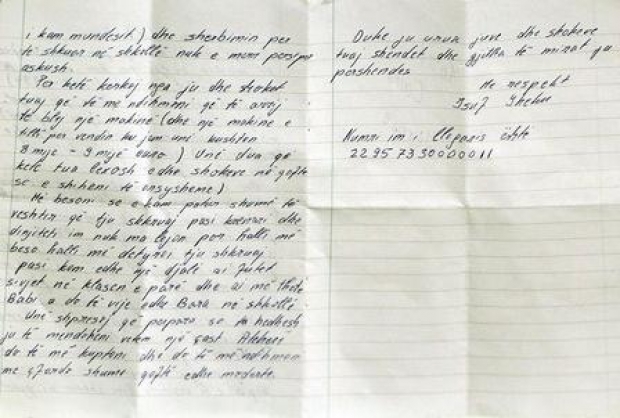 i kam mundësit) dhe sherbimin per
të shkuar në shkollë nuk e mar persiper
askush.
Per ketë kerkoj nga ju dhe shokët
tuaj që të me ndihmoni që të arrij
të blej një makinë (dhe një makinë e
tillë për vendin ku jam unë kushton
8 mijë - 9 mijë euro) Unë dua që
ketë tua lexosh edhe shokeve në qoftë
se e shihëni të arsyshme)
Më besoni se e kam patur shumë të
veshtir që t'ju shkruaj pasi krenari dhe
dinjiteti im nuk ma lejon por halli më
beso halli më detyroi t'ju shkruaj
pasi kam edhe një djalë ai futet
sivjet në klasen e parë dhe ai më thotë
Babi a do të vije edhe Bora në shkollë
Unë shpresoj që perpara se ta hedhesh
ju të mendoheni vetem një çast. Atëherë
do të më kuptoni dhe do të më ndihmon
me çfardo shume qoftë edhe modeste.
Duke ju uruar juve dhe shokeve
tuaj shendet dhe gjitha të mirat ju
pershendes
Me respekt
Isuf Shehu
Numri im i llogaris është
22957330000011